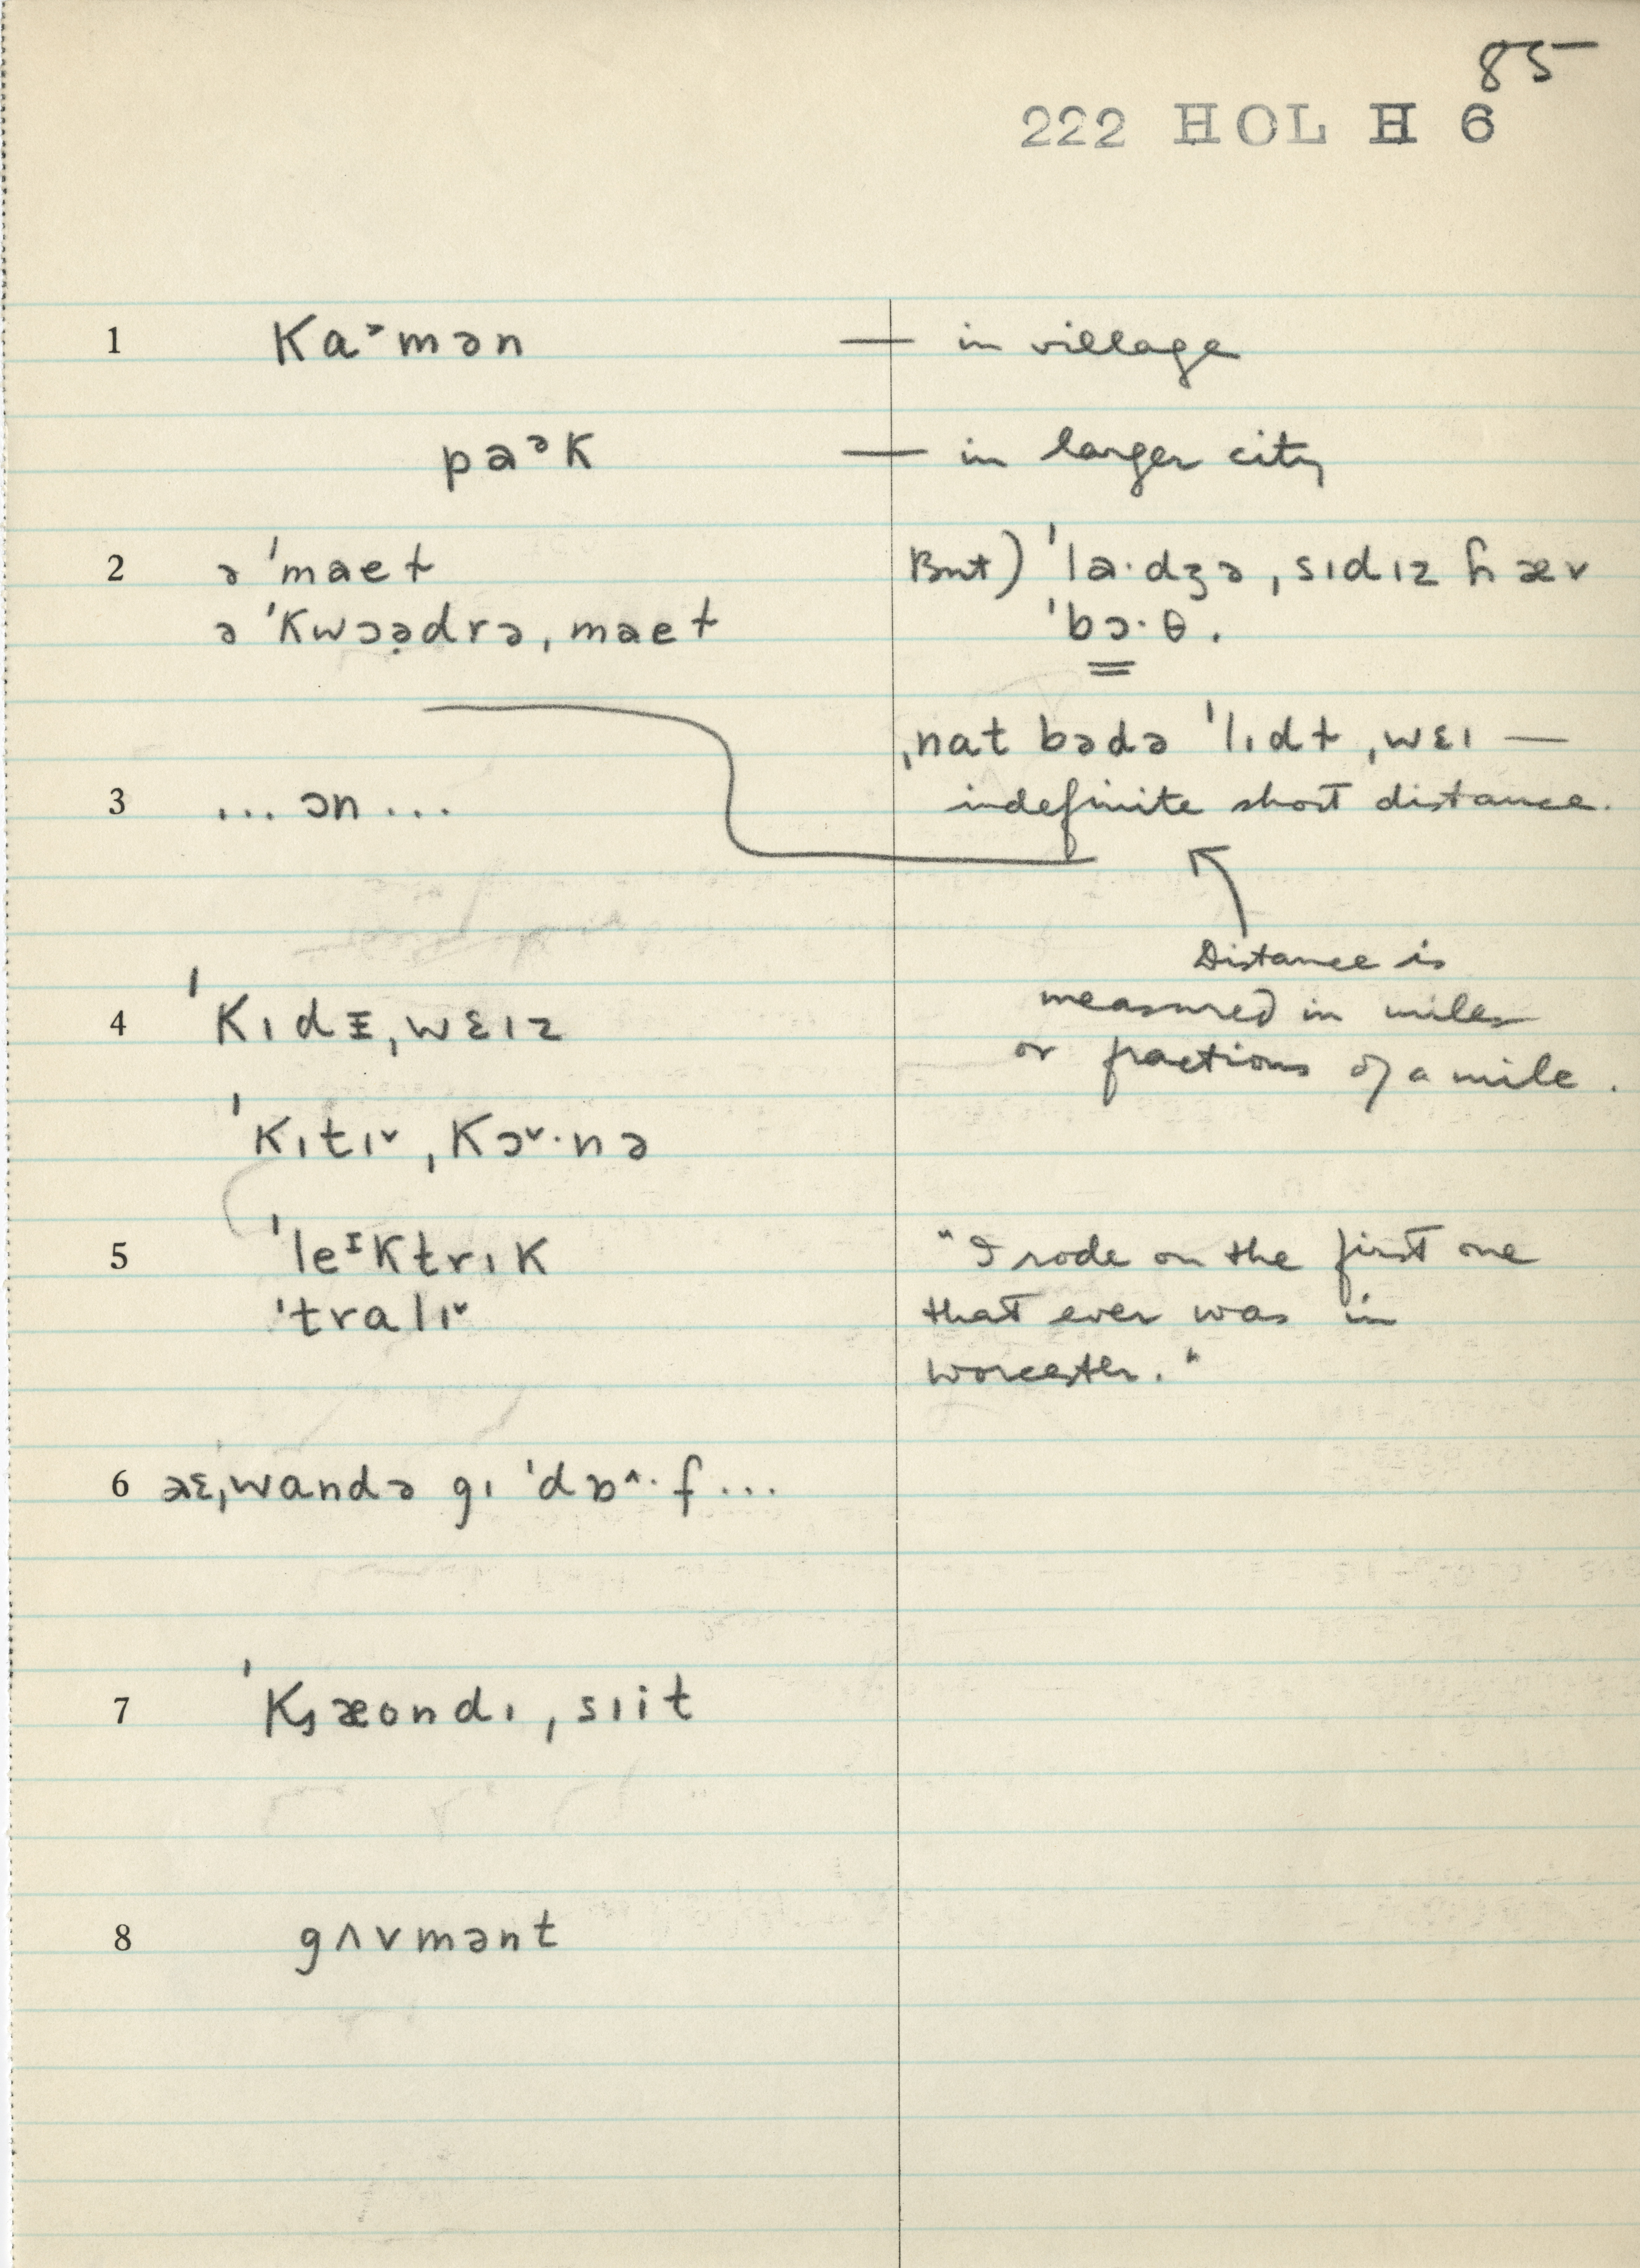 85
222 HOL H 6
1 Ka˃mən — in village
paᵊK — in larger city
2 ə ˈmaeɫ
ə ˈKwɔə̣drə, maeɫ
But) ˈla·dʒə ˌsɪdɪz ɦæv
ˈbɔ·θ.
ˌnat bədə ˈlɪdɫ ˌwɛɪ —
3 ... ɔn ...
indefinite short distance.
Distance is
measured in miles
or fractions of a mile.
4 ˈKɪdᵻˌwɛɪz
ˈKɪtɪ˅ ˌKɔ˅·nə
5 ˈleᴵKtrɪK
ˈtralɪ˅
"I rode on the first one
that ever was in
Worcester."
6 aɛˌwandə gɪ ˈdɒ^·f ...
7 ˈKᶊæondɪ ˌsɪit
8 gʌvmənt